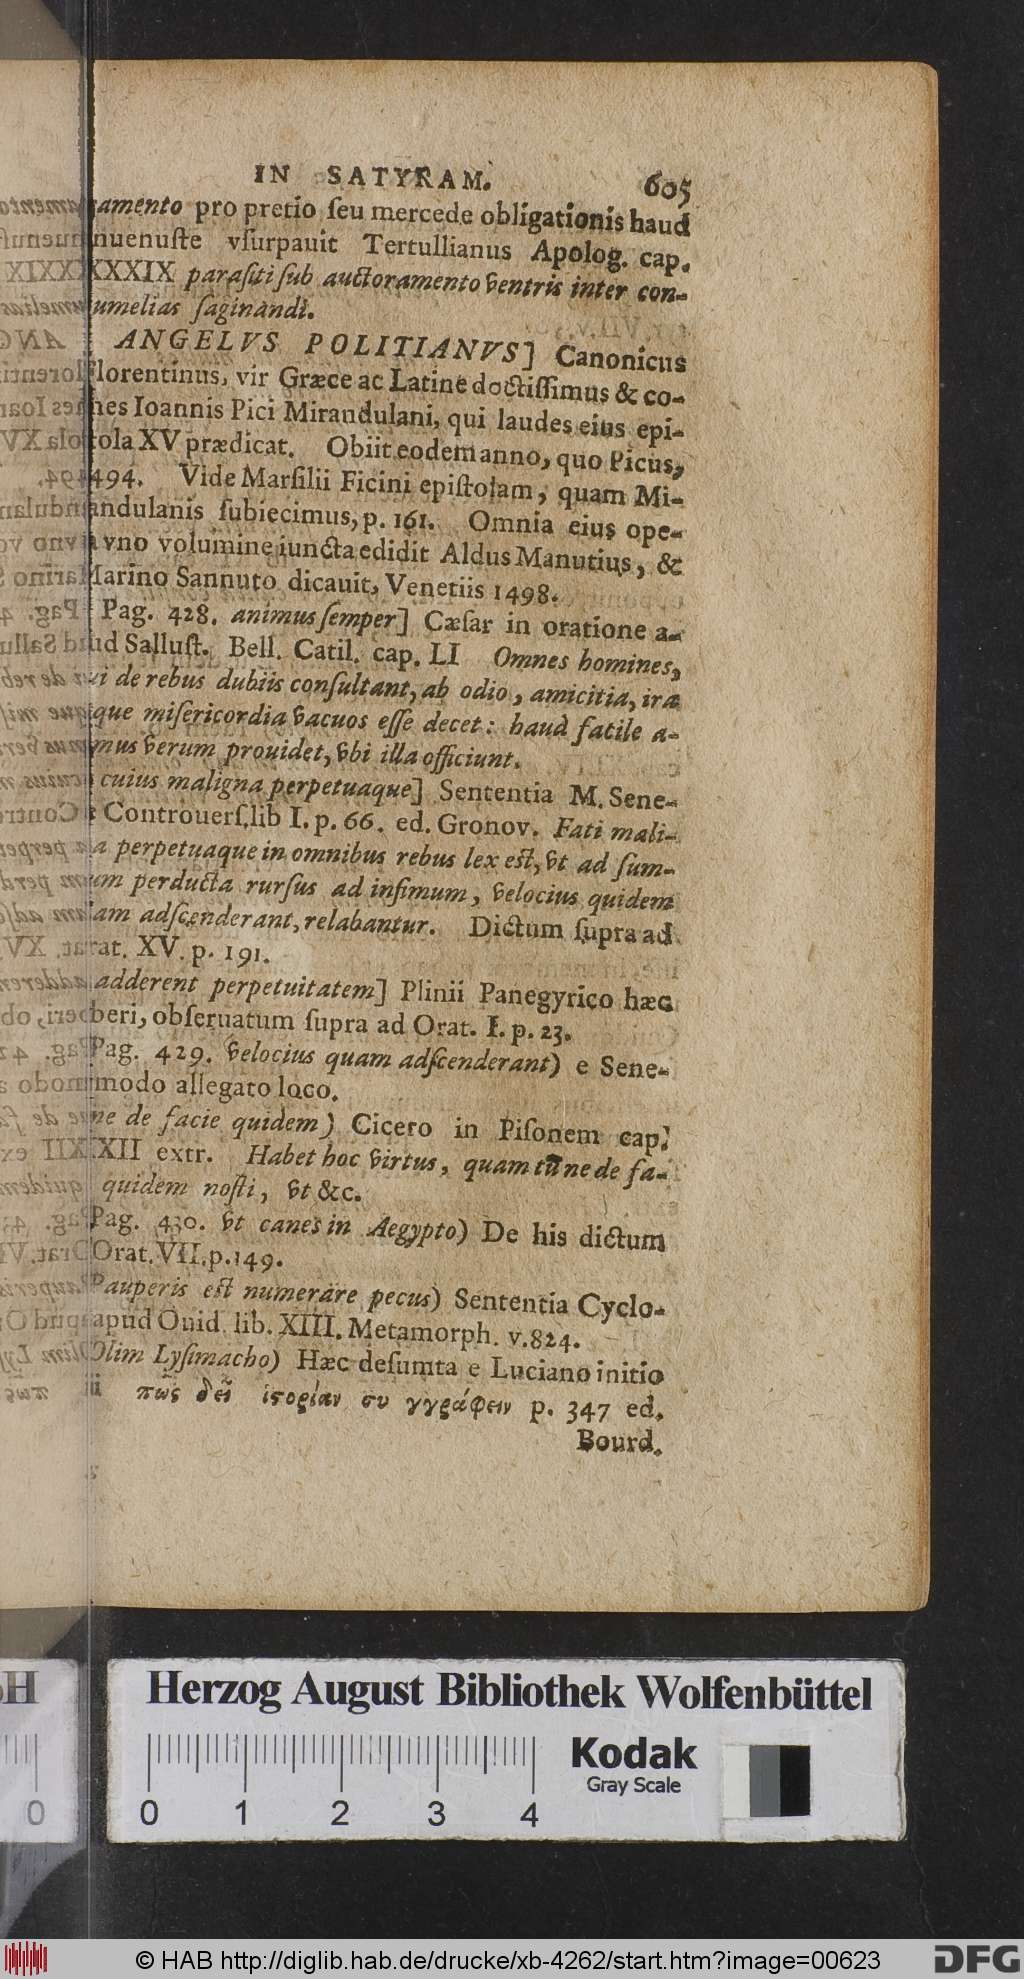 IN SATYRAM. 605
amento pro pretio ſeu mercede obligationis haud
nuenuſte vſurpauit Tertullianus Apolog. cap.
XXXIX paraſiti ſub auctoramento ventris inter con-
umelias ſaginandi.
ANGELVS POLITIANVS] Canonicus
Florentinus, vir Græce ac Latine doctiſſimus & co-
mes Ioannis Pici Mirandulani, qui laudes eius epi-
ſtola XV prædicat. Obiit eodem anno, quo Picus,
1494. Vide Marſilii Ficini epiſtolam, quam Mi-
randulanis ſubiecimus, p. 161. Omnia eius ope-
ra vno volumine iuncta edidit Aldus Manutius, &
Marino Sannuto dicauit, Venetiis 1498.
Pag. 428. animus ſemper] Cæſar in oratione a-
pud Salluſt. Bell. Catil. cap. LI Omnes homines,
qui de rebus dubiis conſultant, ab odio, amicitia, ira
que miſericordia vacuos eſſe decet: haud facile a-
nimus verum prouidet, vbi illa officiunt.
cuius maligna perpetuaque] Sententia M. Sene-
Controuerſ. lib I. p. 66. ed. Gronov. Fati mali-
gna perpetuaque in omnibus rebus lex eſt, vt ad ſum-
mum perducta rurſus ad infimum, velocius quidem
quam adſcenderant, relabantur. Dictum ſupra ad
Orat. XV. p. 191.
adderent perpetuitatem] Plinii Panegyrico hæc
deberi, obſeruatum ſupra ad Orat. I. p. 23.
Pag. 429. velocius quam adſcenderant) e Sene-
modo allegato loco.
ne de facie quidem) Cicero in Piſonem cap.
XXXII extr. Habet hoc virtus, quam tu ne de fa-
quidem noſti, vt &c.
Pag. 430. vt canes in Aegypto) De his dictum
Orat. VII. p. 149.
Pauperis eſt numerare pecus) Sententia Cyclo-
apud Ouid. lib. XIII. Metamorph. v. 824.
Olim Lyſimacho) Hæc deſumta e Luciano initio
πῶς δεῖ ἱςορίαν συγγράφειν p. 347 ed.
Bourd.
Herzog August Bibliothek Wolfenbüttel
Kodak
Gray Scale
0 1 2 3 4
© HAB http://diglib.hab.de/drucke/xb-4262/start.htm?image=00623
DFG